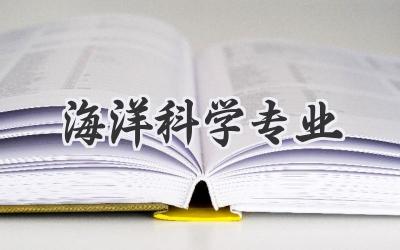 海洋科学专业